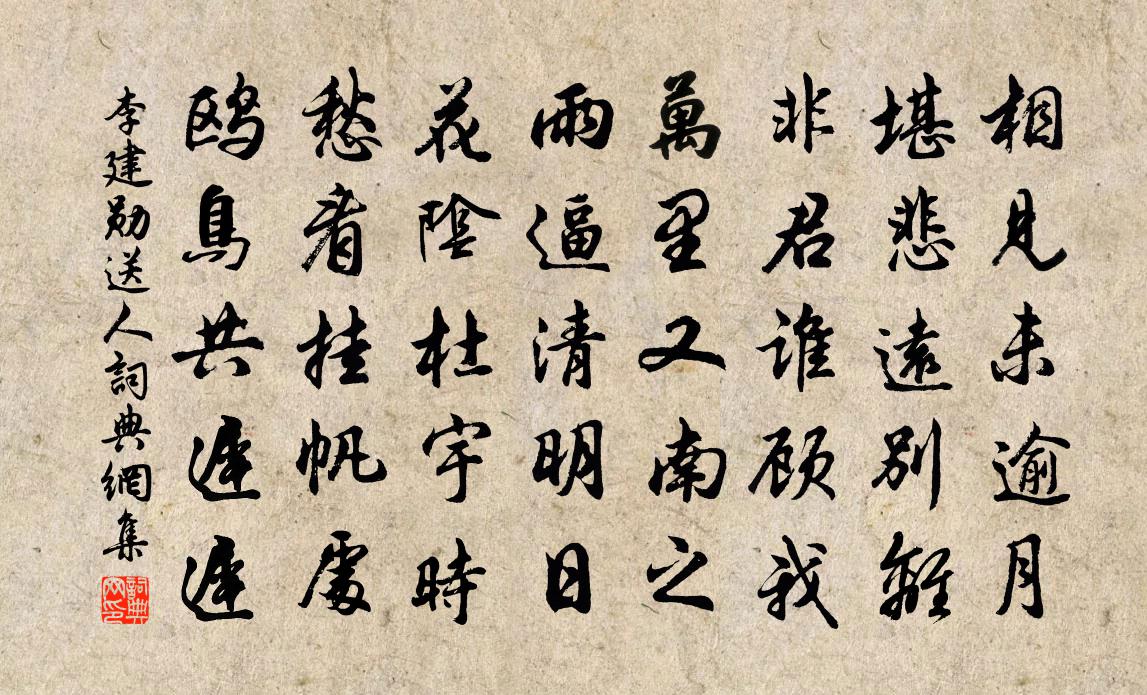 相見未逾月
堪悲遠別離
非君誰顧我
萬里又南之
雨逼清明日
花陰杜宇時
愁看挂帆處
鷗鳥共遲遲
李建勛送人詞典網集
詞典網印